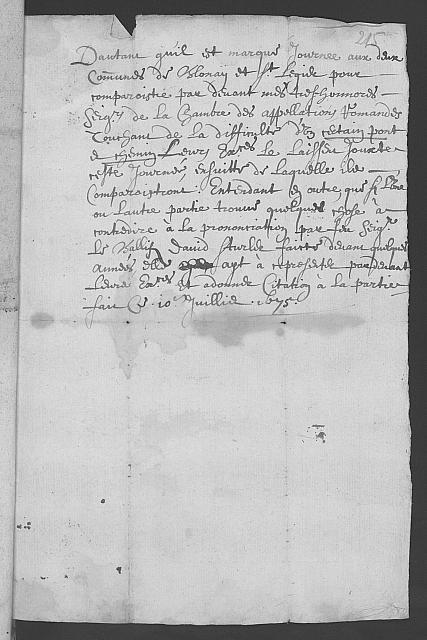 215
Dautant quil est marque Journee aux deux
Comunes de Blonay et St Legier pour
comparoistre par devant mes treshonnores
Seigrs de la Chambre des appellations Romandes
Touchant de la difficulte dun certain pont
& chemin Leurs Exces Le Laissent Jouxte
ceste Journee ensuitte de laquelle ilz
Comparoistront Entendant en outre que si Lune
ou Lautre partie trouve quelque chose à
contredire à la prononciation par feu Seigr
Le Ballif David faicte devant quelques
années elle aye à representer pardevant
Leurs Exces et adonner Citation à la partie
fait ce 10e Juillie 1675